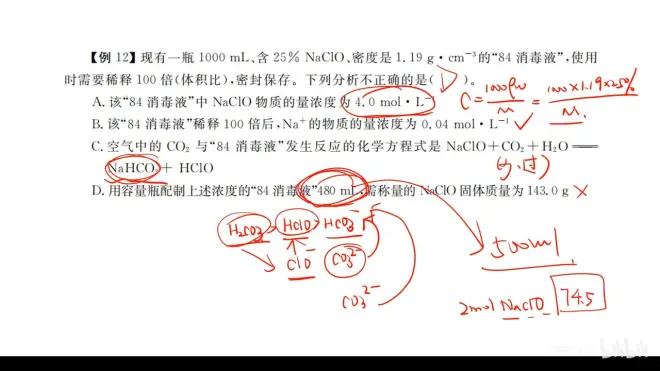 【例 12】现有一瓶 1000 mL、含 25% NaClO、密度是 1.19 g·cm⁻³的“84 消毒液”,使用
时需要稀释 100 倍(体积比),密封保存。下列分析不正确的是( D )。
A. 该“84 消毒液”中 NaClO 物质的量浓度为 4.0 mol·L⁻¹
C = 1000ρω/M = 1000×1.19×25%/M
B. 该“84 消毒液”稀释 100 倍后,Na⁺的物质的量浓度为 0.04 mol·L⁻¹ ✓
C. 空气中的 CO₂ 与“84 消毒液”发生反应的化学方程式是 NaClO+CO₂+H₂O══
NaHCO₃+ HClO
(少,过)
D. 用容量瓶配制上述浓度的“84 消毒液”480 mL,需称量的 NaClO 固体质量为 143.0 g ×
H₂CO₃ HClO HCO₃⁻
ClO⁻ CO₃²⁻
500ml
CO₃²⁻
2mol NaClO 74.5